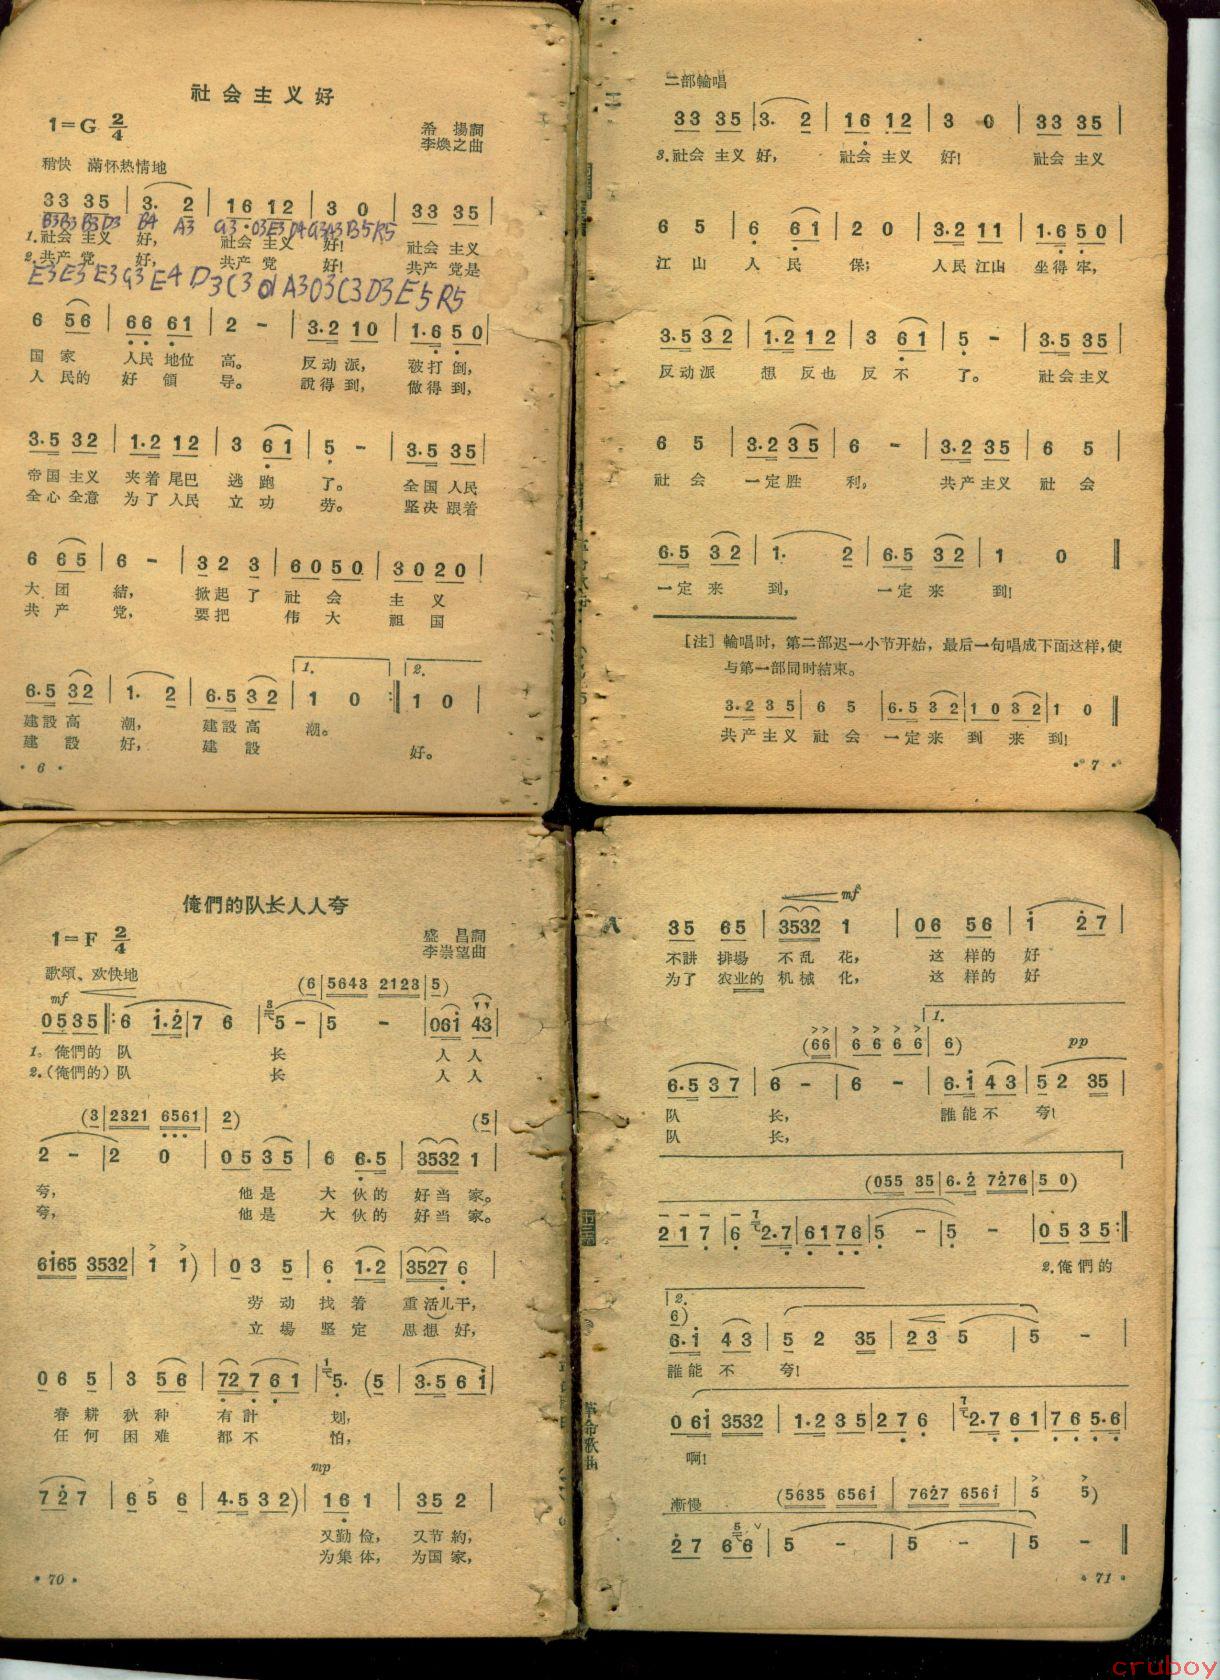 社会主义好
1=G 2/4
希揚詞
李煥之曲
稍快 滿怀热情地
33 35 | 3. 2 | 16 12 | 3 0 | 33 35 |
B3B3 B3D3 B4 A3 G3
1.社会 主义 好, 社会 主义 好! 社会 主义
2.共产 党 好, 共产 党 好! 共产 党是
E3E3 E3G3 E4 D3C3 A3 C3D3E5R5
6 56 | 66 61 | 2 - | 3.2 10 | 1.6 50 |
国家 人民 地位 高。 反动派, 被打倒,
人民的 好領 导。 說得到, 做得到,
3.5 32 | 1.2 12 | 3 61 | 5 - | 3.5 35 |
帝国主义 夹着尾巴 逃跑 了。 全国人民
全心全意 为了人民 立功 劳。 坚决跟着
6 65 | 6 - | 32 3 | 6050 | 3020 |
大团 結, 掀起了 社会 主义
共产 党, 要把 伟大 祖国
1. 2.
6.5 32 | 1. 2 | 6.5 32 | 1 0 :| 1 0 |
建設高 潮, 建設高 潮。
建設 好, 建設 好。
· 6 ·
二部輪唱
33 35 | 3. 2 | 16 12 | 3 0 | 33 35 |
3.社会 主义 好, 社会 主义 好! 社会 主义
6 5 | 6 61 | 2 0 | 3.2 11 | 1.6 50 |
江山 人民 保; 人民江山 坐得牢,
3.5 32 | 1.2 12 | 3 61 | 5 - | 3.5 35 |
反动派 想反也 反不 了。 社会主义
6 5 | 3.2 35 | 6 - | 3.2 35 | 6 5 |
社会 一定胜 利, 共产主义 社会
6.5 32 | 1. 2 | 6.5 32 | 1 0 ‖
一定来 到, 一定来 到!
[注] 輪唱时, 第二部迟一小节开始, 最后一句唱成下面这样, 使
与第一部同时結束。
3.2 35 | 6 5 | 6.5 32 | 10 32 | 1 0 ‖
共产主义 社会 一定来 到 来 到!
· 7 ·
俺們的队长人人夸
1=F 2/4
盛昌詞
李崇望曲
歌頌、欢快地
(6 | 5643 2123 | 5)
mf
0535 ‖: 6 1.2 | 7 6 | 5 - | 5 - | 061 43 |
1。俺們的 队 长 人人
2.(俺們的)队 长 人人
(3 | 2321 6561 | 2) (5 |
2 - | 2 0 | 05 35 | 6 6.5 | 3532 1 |
夸, 他是 大伙的 好当 家。
夸, 他是 大伙的 好当 家。
6165 3532 | 1 1) | 0 3 5 | 6 1.2 | 3527 6 |
劳动 找着 重活儿干,
立場 坚定 思想 好,
0 6 5 | 3 56 | 72 7 61 | 5. (5 | 3.5 61) |
春耕秋种 有計 划,
任何困难 都不 怕,
mp
7 2 7 | 6 5 6 | 4.5 32) | 16 1 | 35 2 |
又勤俭, 又节約,
为集体, 为国家,
· 70 ·
mf
35 65 | 3532 1 | 06 56 | 1 27 |
不講排場 不乱 花, 这样的 好
为了 农业的 机械 化, 这样的 好
1.
(66 | 6 6 6 6 | 6) pp
6.5 37 | 6 - | 6 - | 6.1 43 | 5 2 35 |
队 长, 誰能不 夸!
队 长,
(055 35 | 6.2 7276 | 50)
2 1 7 | 6 2.7 | 6176 | 5 - | 5 - | 0535 :‖
2.俺們的
2.
6)
6.1 43 | 5 2 35 | 23 5 | 5 - |
誰能不 夸!
0 61 3532 | 1.2 35 | 27 6 | 2.7 61 | 76 5.6 |
啊!
漸慢 (5635 6561 | 7627 6561 | 5 5)
27 66 | 5 - | 5 - | 5 - ‖
· 71 ·
革命歌曲
cruboy